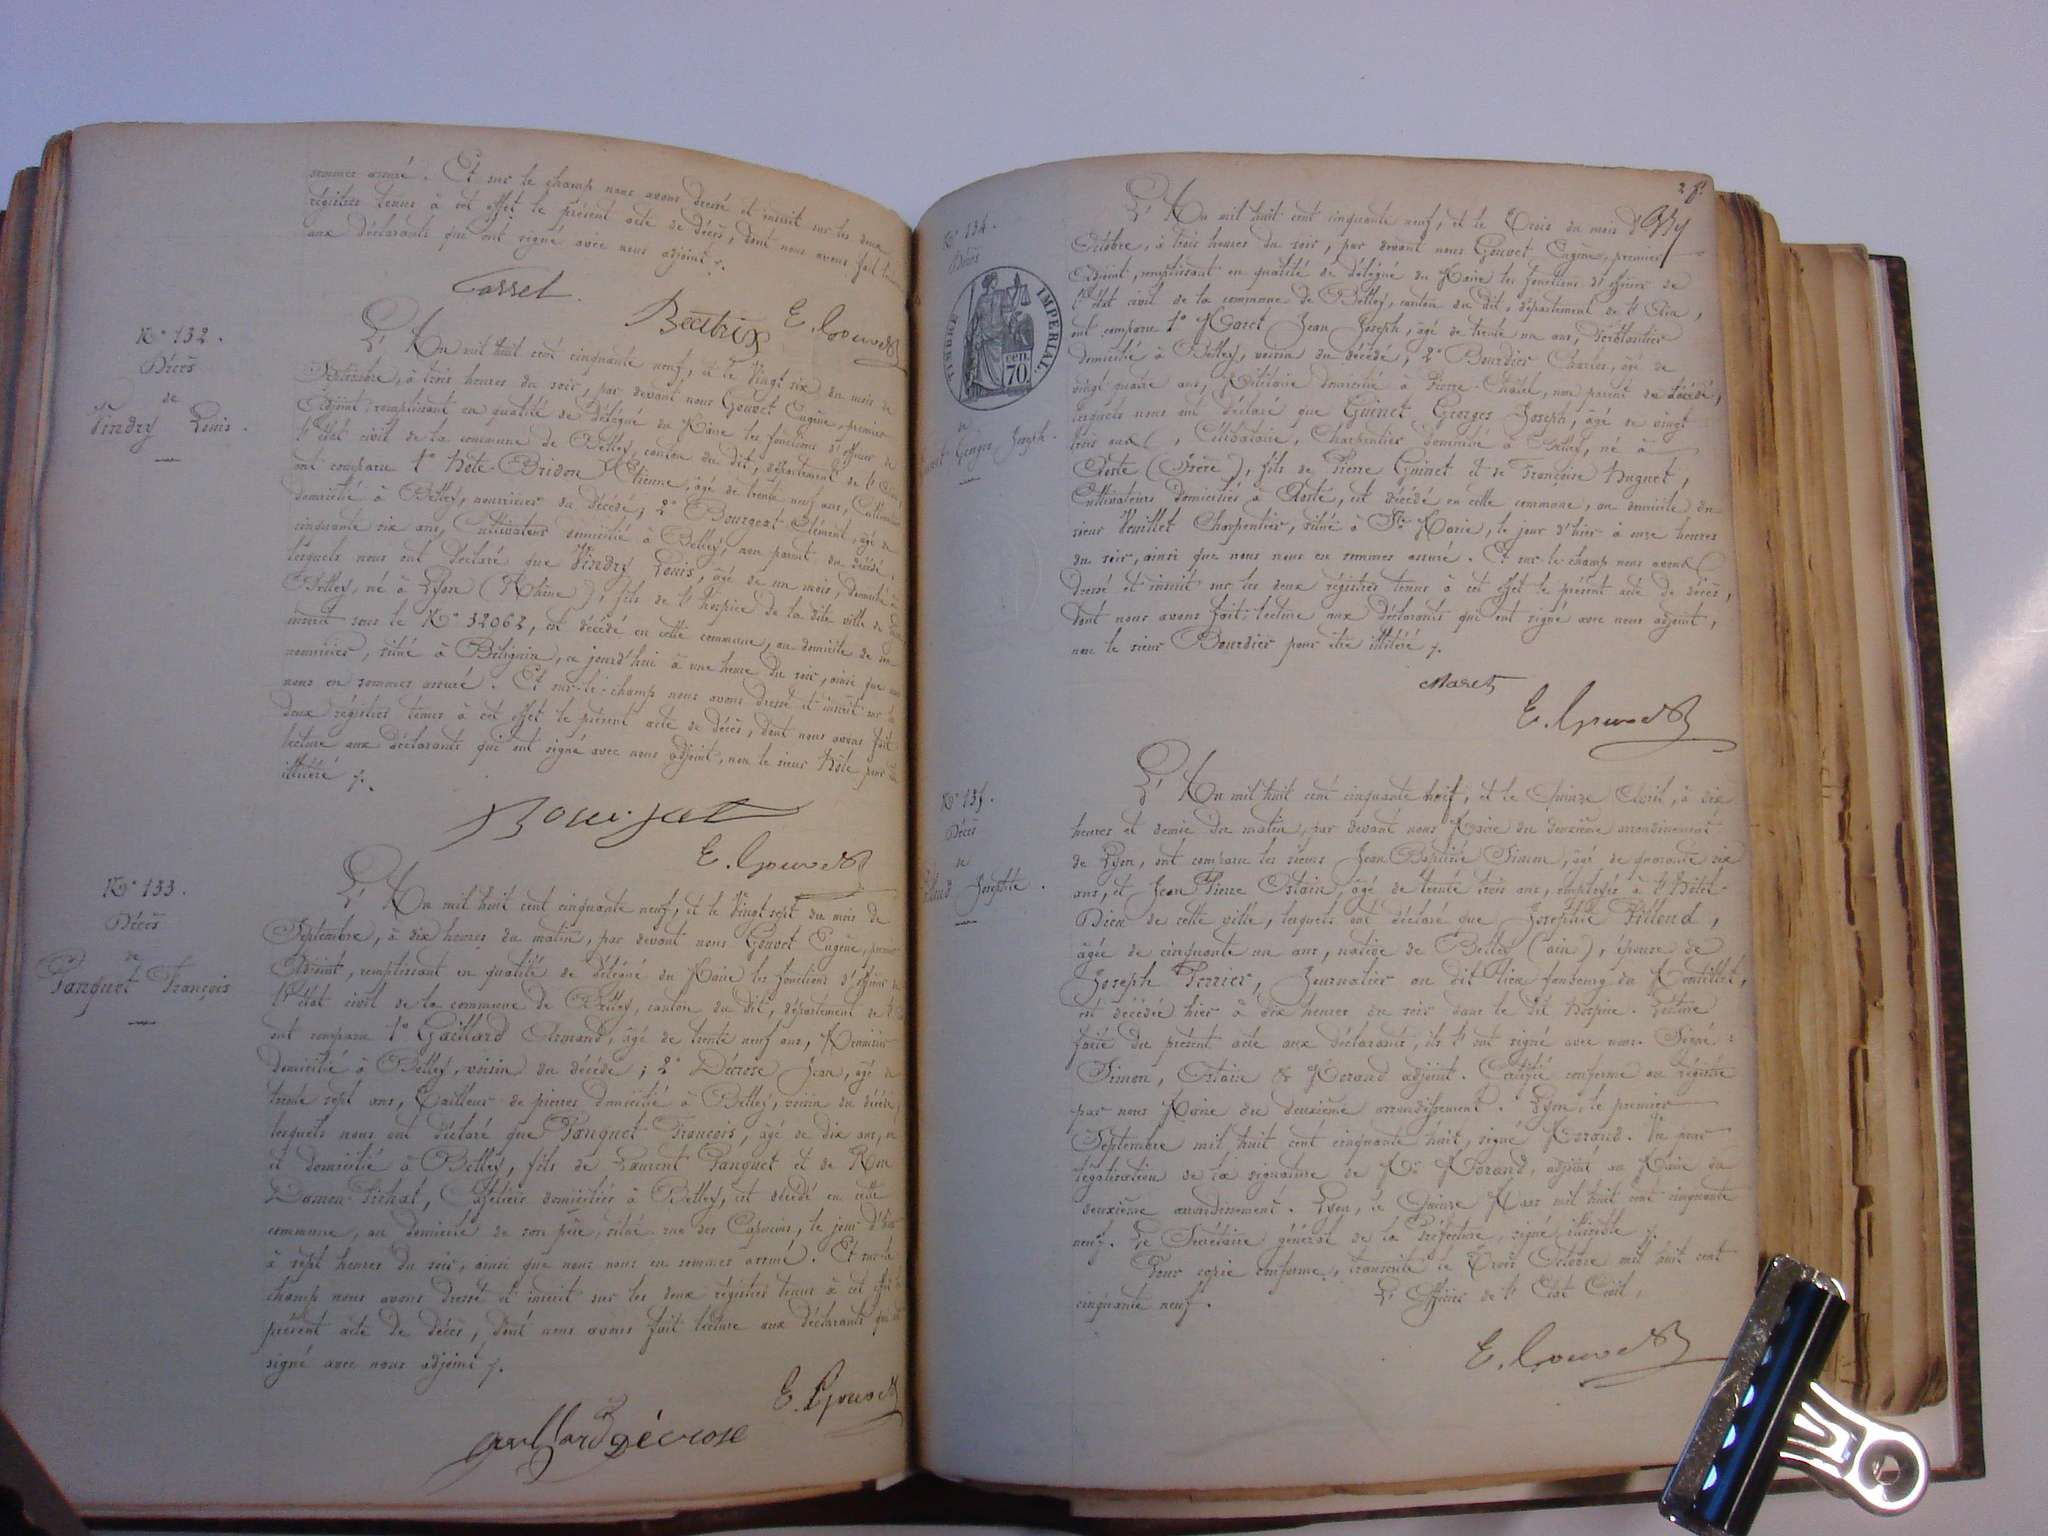 sommes assuré. Et sur le champ nous avons dressé et inscrit sur les deux
régistres tenus à cet effet le présent acte de décès, dont nous avons fait lecture
aux déclarants qui ont signé avec nous adjoint ./.
Cassel. Béatrix E. Gouvet
N° 132.
Décès
de
Vindry Louis.
L'An mil huit cent cinquante neuf, et le Vingt six du mois de
Septembre, à trois heures du soir, par devant nous Gouvet Eugène, premier
Adjoint, remplissant en qualité de délégué du Maire les fonctions d'officier de
l'état civil de la commune de Belley, canton du dit, département de l'Ain,
ont comparu 1° Hôte-Bridon Etienne, âgé de trente neuf ans, Cultivateur
domicilié à Belley, nourricier du décédé; 2° Bourgeat Clément, âgé de
cinquante six ans, Cultivateur domicilié à Belley, non parent du décédé,
lesquels nous ont déclaré que Vindry Louis, âgé de un mois, domicilié à
Belley, né à Lyon (Rhône), fils de l'hospice de la dite ville de
inscrit sous le N° 32062, est décédé en cette commune, au domicile de son
nourricier, situé à Bélignin, ce jourd'hui à une heure du soir, ainsi que nous
nous en sommes assuré. Et sur-le-champ nous avons dressé et inscrit sur les
deux régistres tenus à cet effet le présent acte de décès, dont nous avons fait
lecture aux déclarants qui ont signé avec nous adjoint, non le sieur Hôte pour être
illitéré ./.
Bourjat
E. Gouvet
N° 133.
Décès
de
Panquet François
L'An mil huit cent cinquante neuf, et le Vingt sept du mois de
Septembre, à dix heures du matin, par devant nous Gouvet Eugène, premier
Adjoint, remplissant en qualité de délégué du Maire les fonctions d'officier de
l'état civil de la commune de Belley, canton du dit, département de l'Ain
ont comparu 1° Gaillard Armand, âgé de trente neuf ans, Menuisier
domicilié à Belley, voisin du décédé; 2° Décrose Jean, âgé de
trente sept ans, Tailleur de pierres domicilié à Belley, voisin du décédé,
lesquels nous ont déclaré que Panquet François, âgé de dix ans, né
et domicilié à Belley, fils de Laurent Panquet et de
Damon-Pichat, Cafetiers domiciliés à Belley, est décédé en cette
commune, au domicile de son père, situé rue des Capucins, le jour d'hier
à sept heures du soir, ainsi que nous nous en sommes assuré. Et sur-le-
champ nous avons dressé et inscrit sur les deux régistres tenus à cet effet le
présent acte de décès, dont nous avons fait lecture aux déclarants qui ont
signé avec nous adjoint ./.
E. Gouvet
gaillard Décrose
N° 134.
Décès
TIMBRE IMPERIAL.
cen.
70.
de
Guinet Georges Joseph.
L'An mil huit cent cinquante neuf, et le Trois du mois d'
Octobre, à trois heures du soir, par devant nous Gouvet Eugène, premier
Adjoint, remplissant en qualité de délégué du Maire les fonctions d'officier de
l'état civil de la commune de Belley, canton du dit, département de l'Ain,
ont comparu 1° Maret Jean Joseph, âgé de trente un ans, Ferblantier
domicilié à Belley, voisin du décédé, 2° Bourdier Charles, âgé de
vingt quatre ans, Militaire domicilié à Pierre-Châtel, non parent du décédé,
lesquels nous ont déclaré que Guinet Georges Joseph, âgé de vingt
trois ans, Célibataire, Charpentier domicilié à Belley, né à
Aoste (Isère), fils de Pierre Guinet et de Françoise Huguet,
Cultivateurs domiciliés à Aoste, est décédé en cette commune, au domicile du
sieur Veuillet Charpentier, situé à Ste Marie, le jour d'hier à onze heures
du soir, ainsi que nous nous en sommes assuré. Et sur-le-champ nous avons
dressé et inscrit sur les deux régistres tenus à cet effet le présent acte de décès,
dont nous avons fait lecture aux déclarants qui ont signé avec nous adjoint,
non le sieur Bourdier pour être illitéré ./.
Maret
E. Gouvet
N° 135.
Décès
de
Josephte.
L'An mil huit cent cinquante neuf, et le Quinze Avril, à dix
heures et demie du matin, par devant nous Maire du deuxième arrondissement
de Lyon, ont comparu les sieurs Jean Baptiste Simon, âgé de quarante six
ans, et Jean Pierre Ostain, âgé de trente trois ans, employés à l'Hôtel-
Dieu de cette ville, lesquels ont déclaré que Josephte Billoud,
âgée de cinquante un ans, native de Belley (ain), épouse de
Joseph Perrier, Journalier au dit lieu faubourg du
est décédée hier à dix heures du soir dans le dit hospice. Lecture
faite du présent acte aux déclarants, ils l'ont signé avec nous. Signé:
Simon, Ostain & Morand adjoint. Certifié conforme au régistre
par nous Maire du deuxième arrondissement. Lyon, le premier
Septembre mil huit cent cinquante huit, signé Morand. Vu pour
légalisation de la signature de Mr Morand, adjoint au Maire du
deuxième arrondissement. Lyon, le Quinze Mars mil huit cent cinquante
neuf. Le Secrétaire général de la Préfecture, signé illisible ./.
Pour copie conforme, transcrite le Trois Octobre mil huit cent
cinquante neuf. L'Officier de l'Etat Civil,
E. Gouvet